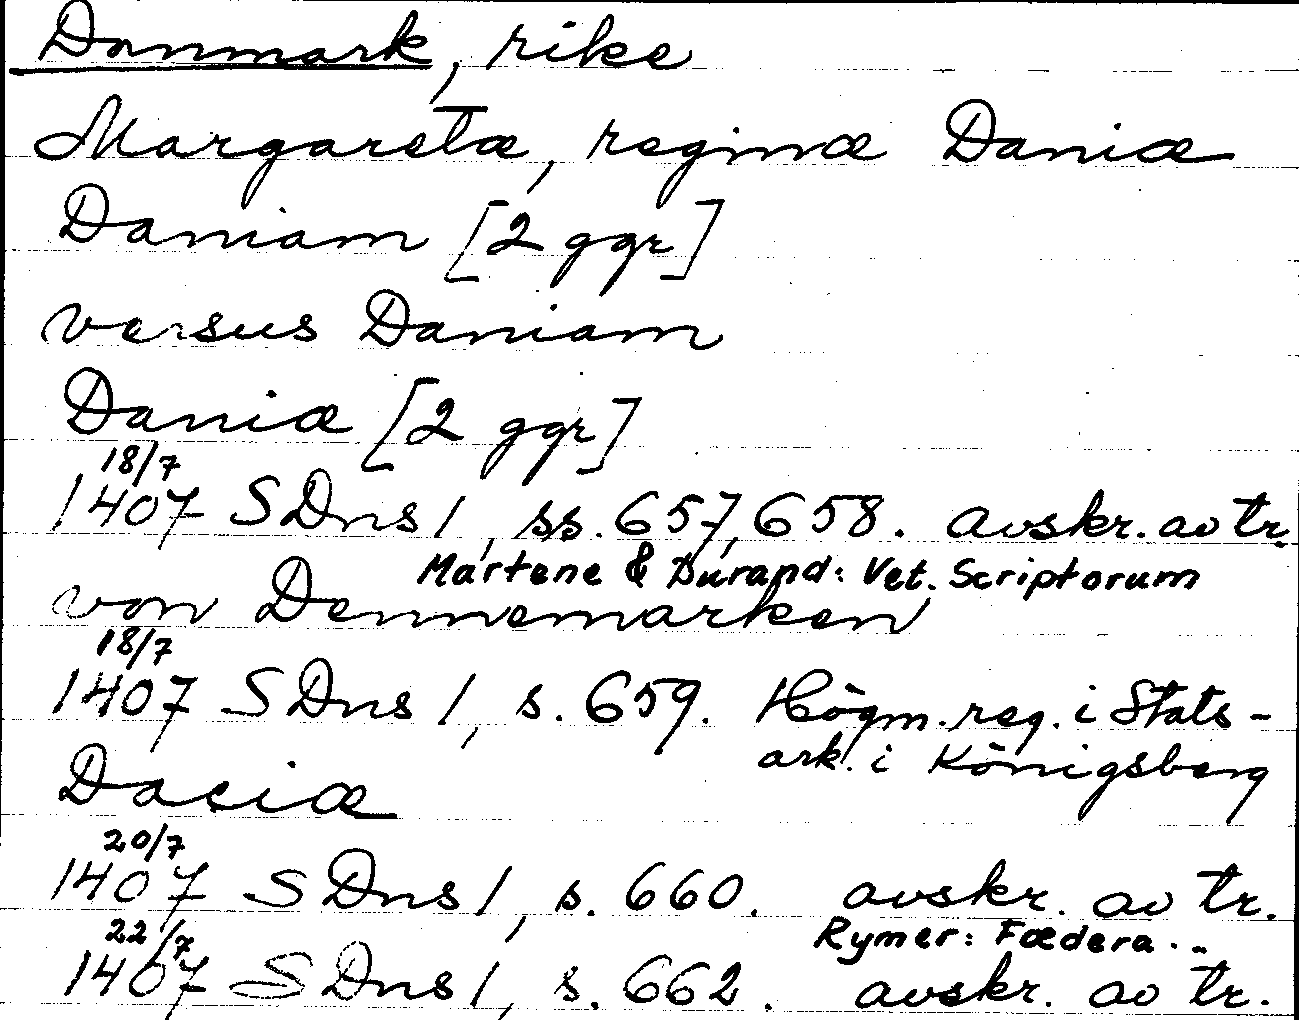 Danmark, rike
Margaretæ, reginæ Daniæ
Daniam [2 ggr]
versus Daniam
Daniæ [2 ggr]
18/7
1407 SDns 1, ss. 657, 658. avskr. av tr.
Martene & Durand: Vet. Scriptorum
von Dennemarken
18/7
1407 SDns 1, s. 659. Högm. reg. i Stats-
ark. i Königsberg
Daciæ
20/7
1407 SDns 1, s. 660. avskr. av tr.
22/7 Rymer: Fædera...
1407 SDns 1, s. 662. avskr. av tr.